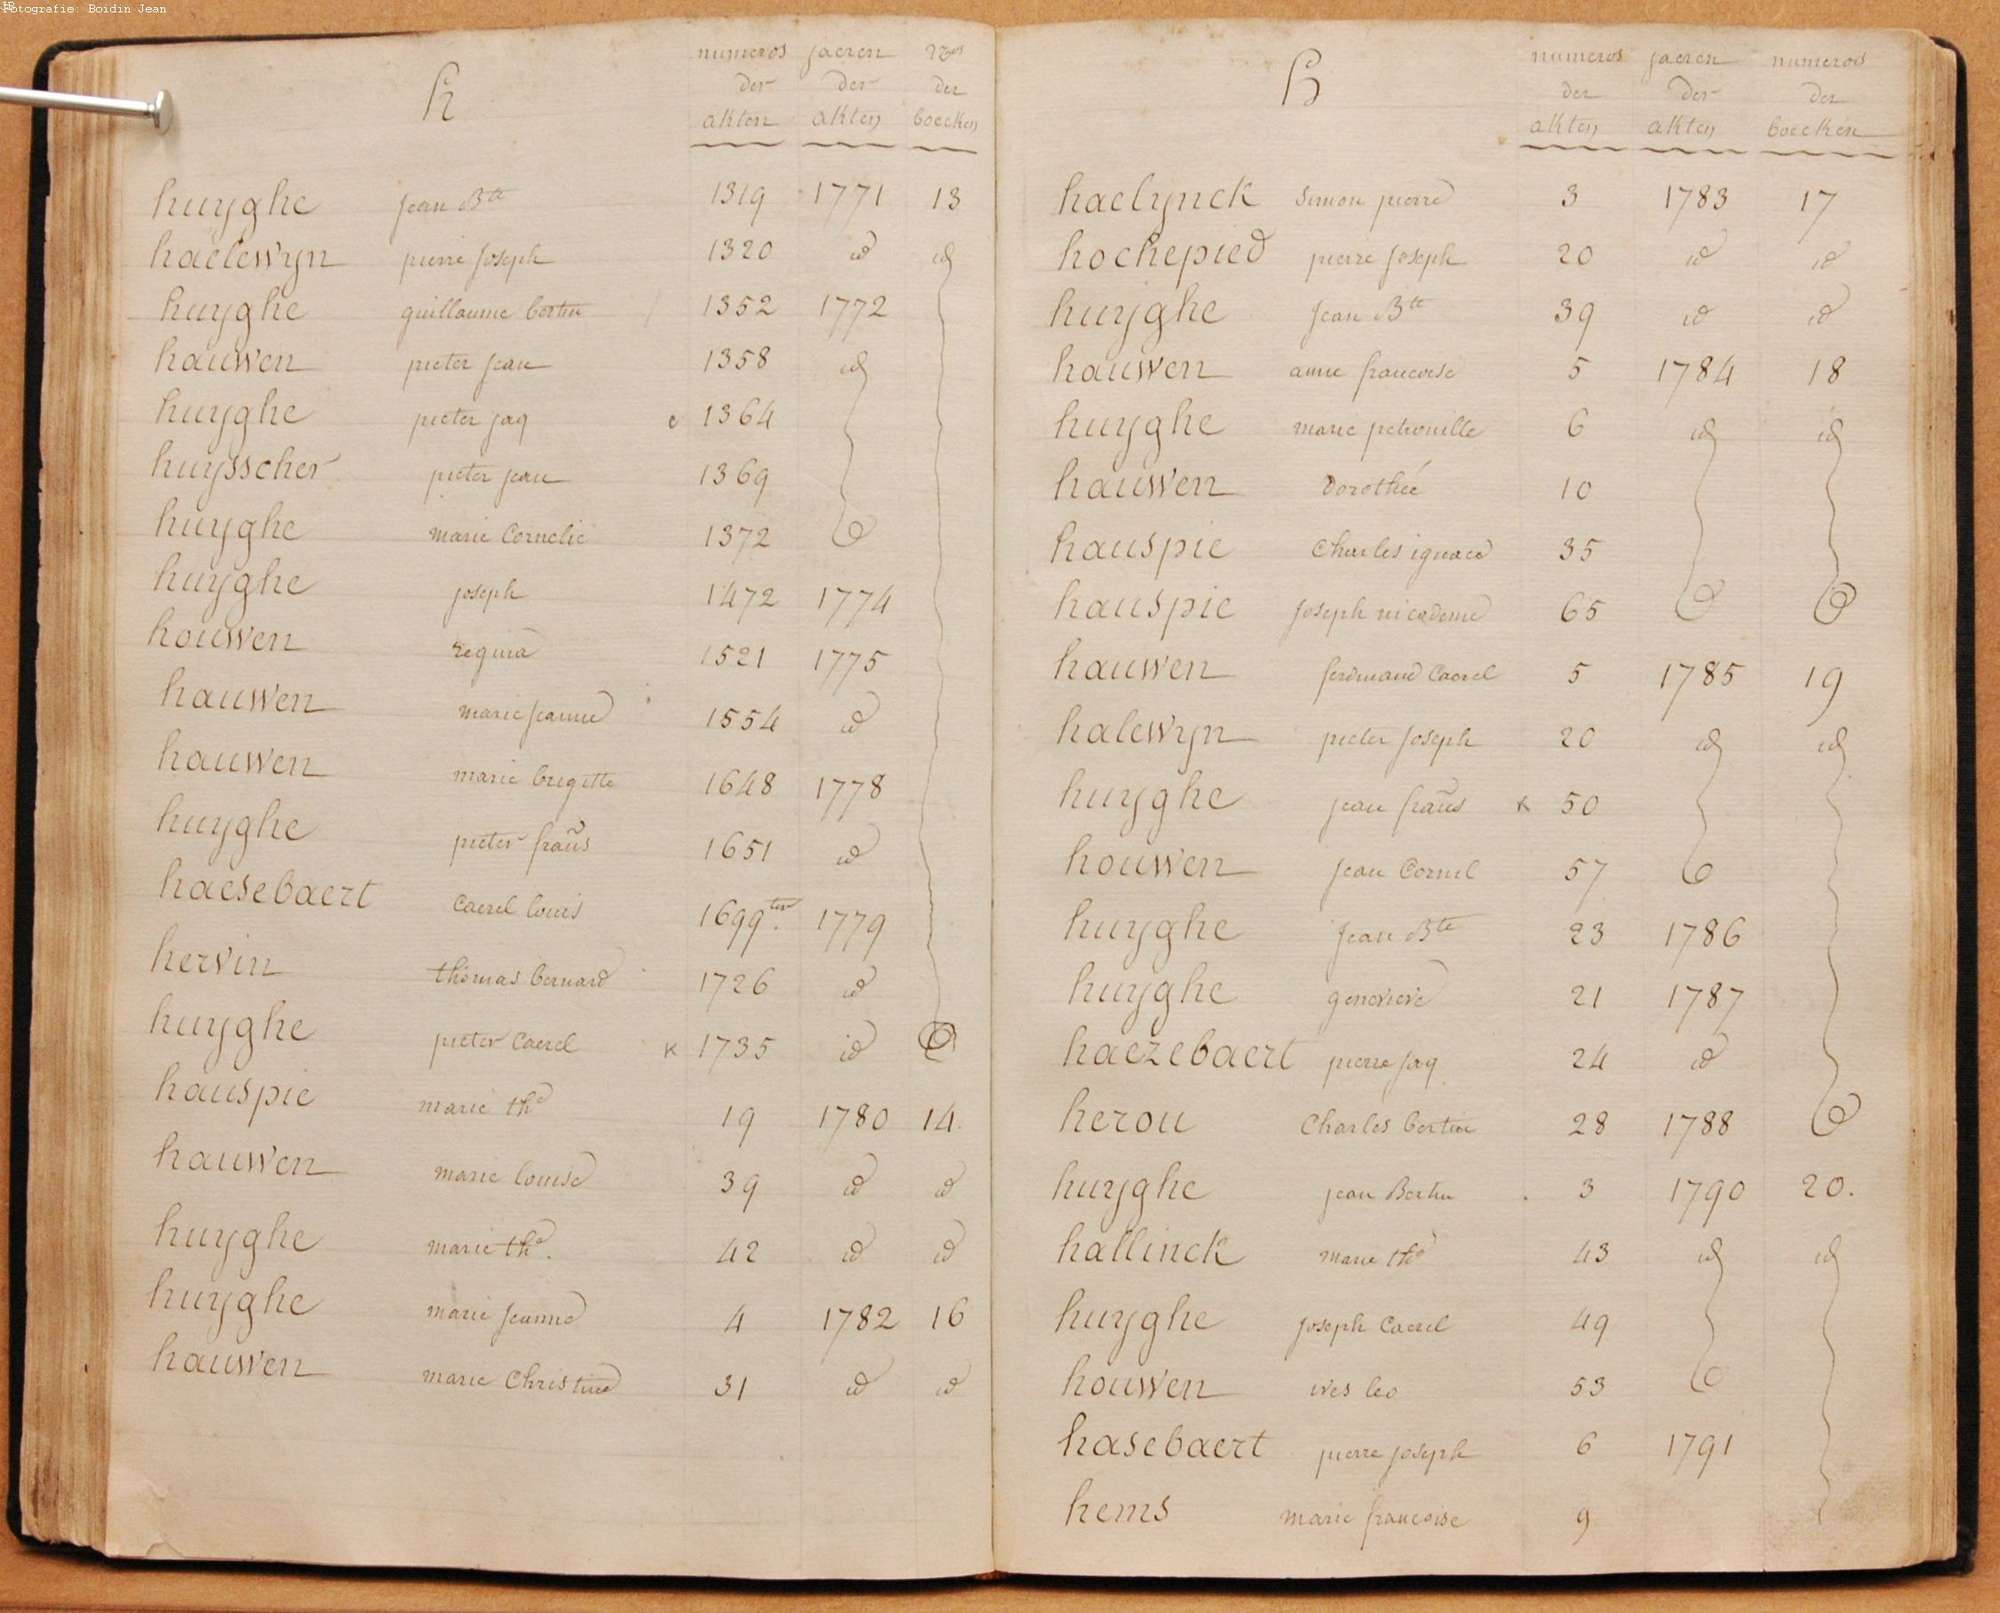 Fotografie: Boidin Jean
h
numeros jaeren nros
der der der
akten akten boecken
huyghe jean Bte 1319 1771 13
haelewyn pierre joseph 1320 id id
huyghe guillaume bertin 1352 1772
hauwen pieter jean 1358 id
huyghe pieter jaq 1364
huysscher pieter jean 1369
huyghe marie Cornelie 1372
huyghe joseph 1472 1774
houwen regina 1521 1775
hauwen marie jeanne 1554 id
hauwen marie brigitte 1648 1778
huyghe pieter frañs 1651 id
haesebaert Caerel louis 1699ter 1779
hervin thomas bernard 1726 id
huyghe pieter Caerel x 1735 id
hauspie marie the 19 1780 14.
hauwen marie louise 39 id id
huyghe marie the. 42 id id
huyghe marie jeanne 4 1782 16
hauwen marie Christine 31 id id
h
numeros jaeren numerois
der der der
akten akten boecken
haelynck Simon pierre 3 1783 17
hochepied pierre joseph 20 id id
huyghe jean Bte 39 id id
hauwen anne francoise 5 1784 18
huyghe marie petronille 6 id id
hauwen Dorothée 10
hauspie Charles ignace 35
hauspie joseph nicodeme 65
hauwen ferdinand Caerel 5 1785 19
halewyn pieter joseph 20 id id
huyghe jean frañs x 50
houwen jean Cornil 57
huyghe jean Bte 23 1786
huyghe genevieve 21 1787
haezebaert pierre jaq 24 id
herou Charles bertin 28 1788
huyghe jean Bertin 3 1790 20.
hallinck marie the 43 id id
huyghe joseph Caerel 49
houwen ives leo 53
hasebaert pierre joseph 6 1791
hems marie francoise 9